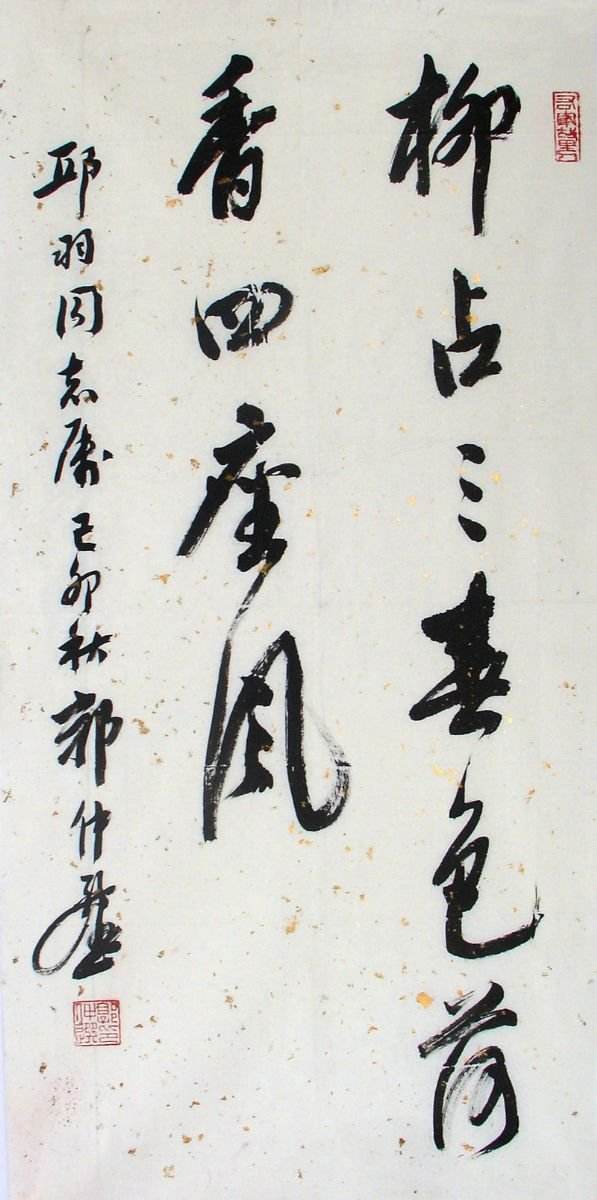 柳占三春色荷
香四座風
邱羽同志属己卯秋郭仲選